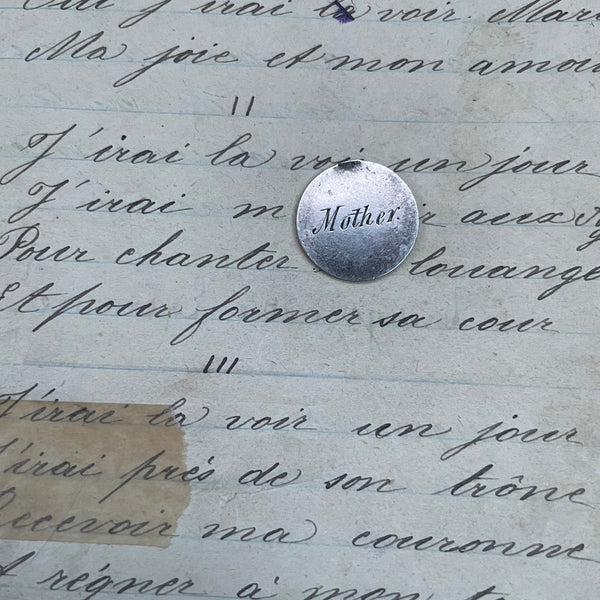 j'irai la voir. Mar
Ma joie et mon amou
II
J'irai la voir un jour
J'irai m ir aux
Mother.
Pour chanter louange
Et pour former sa cour
III
J'irai la voir un jour
J'irai près de son trône
Recevoir ma couronne
régner à mon